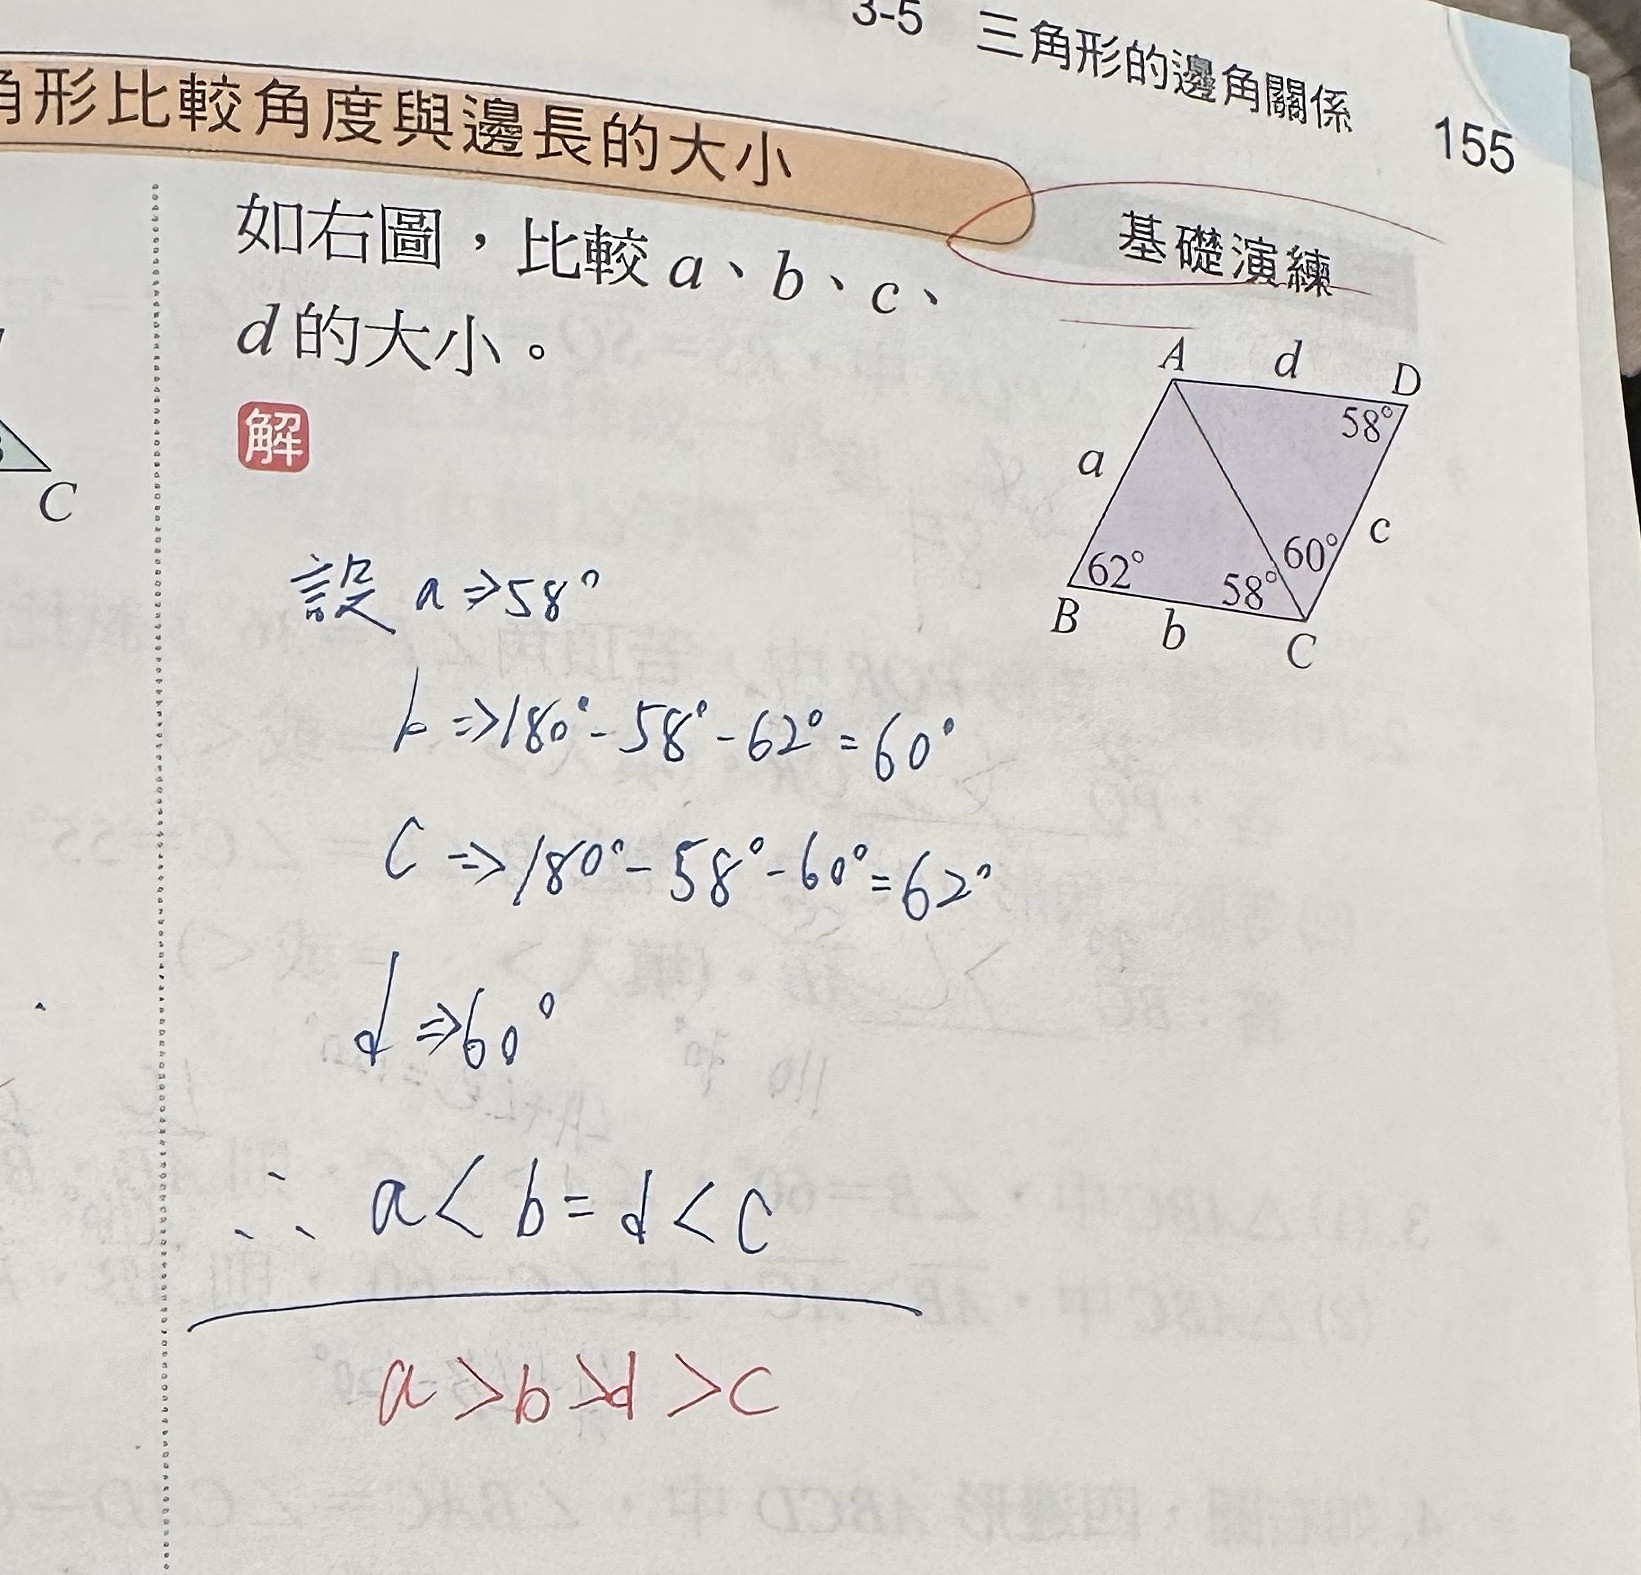 3-5 三角形的邊角關係 155
角形比較角度與邊長的大小
基礎演練
如右圖,比較 a、b、c、
d 的大小。
解
A d D
58°
a
c
60°
62° 58°
B b C
C
設 a⇒58°
b⇒180°-58°-62°=60°
c⇒180°-58°-60°=62°
d⇒60°
∴ a<b=d<c
a>b>d>c